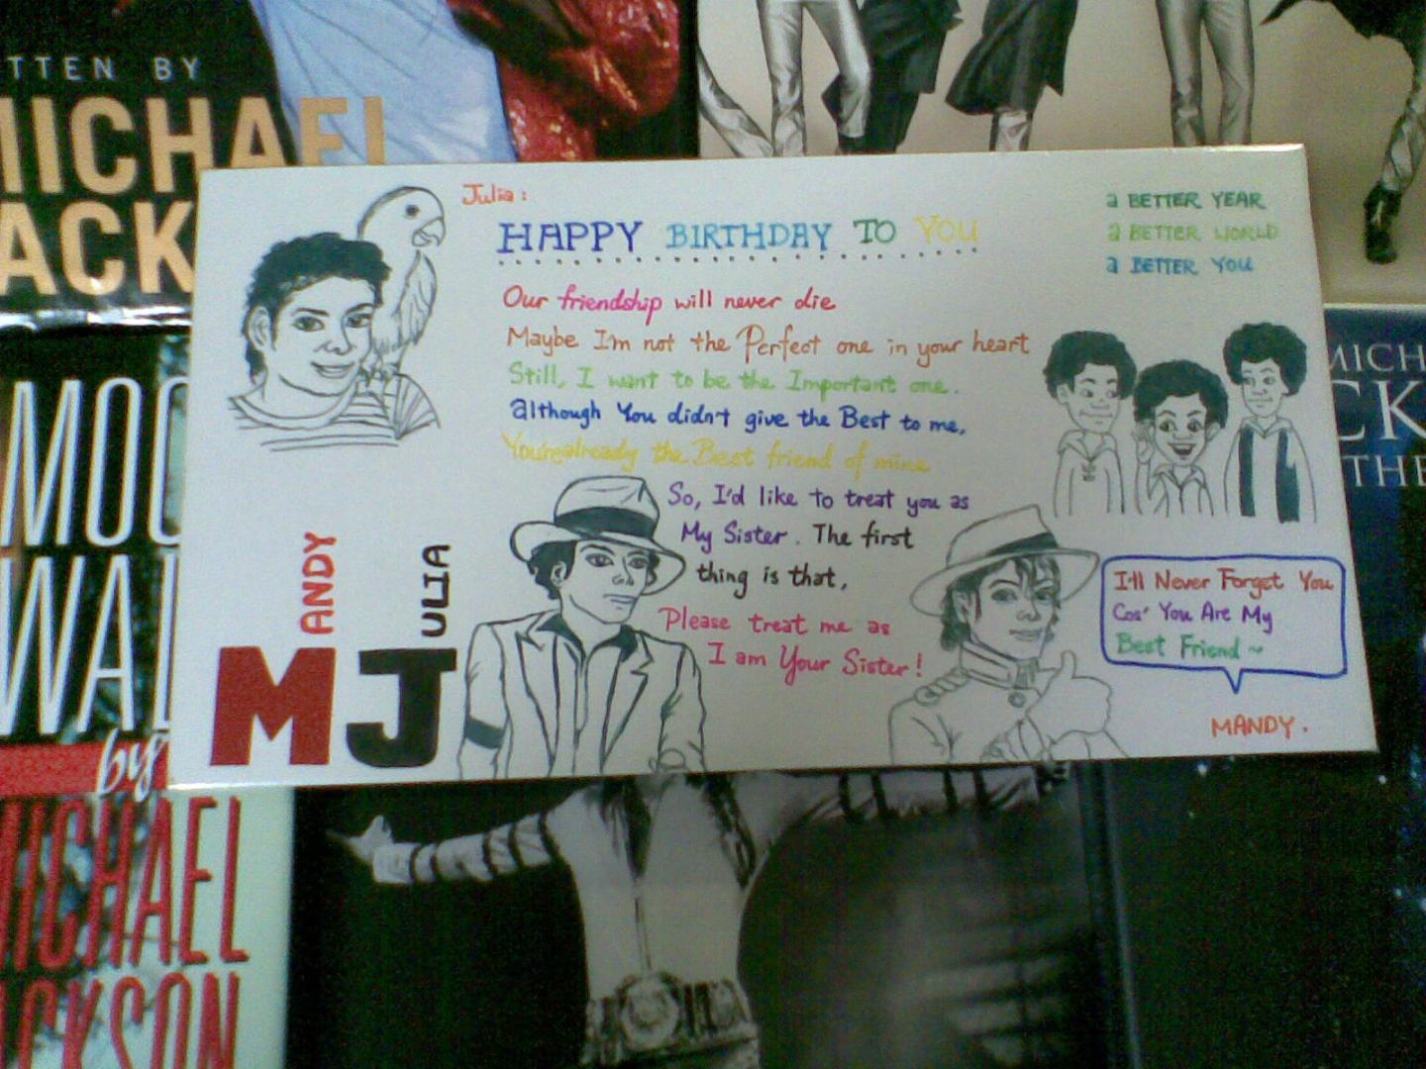 TTEN BY
MICHAEL
ACK
MOO
WAL
by
MICHAEL
JACKSON
Julia:
HAPPY BIRTHDAY TO YOU
Our friendship will never die
Maybe I'm not the Perfect one in your heart
Still, I want to be the Important one.
although You didn't give the Best to me,
You're already the Best friend of mine
So, I'd like to treat you as
My Sister. The first
thing is that,
Please treat me as
I am Your Sister!
a BETTER YEAR
a BETTER WORLD
a BETTER YOU
I'll Never Forget You
Cos' You Are My
Best Friend ~
MANDY.
MANDY
JULIA
MICH
CK
THE